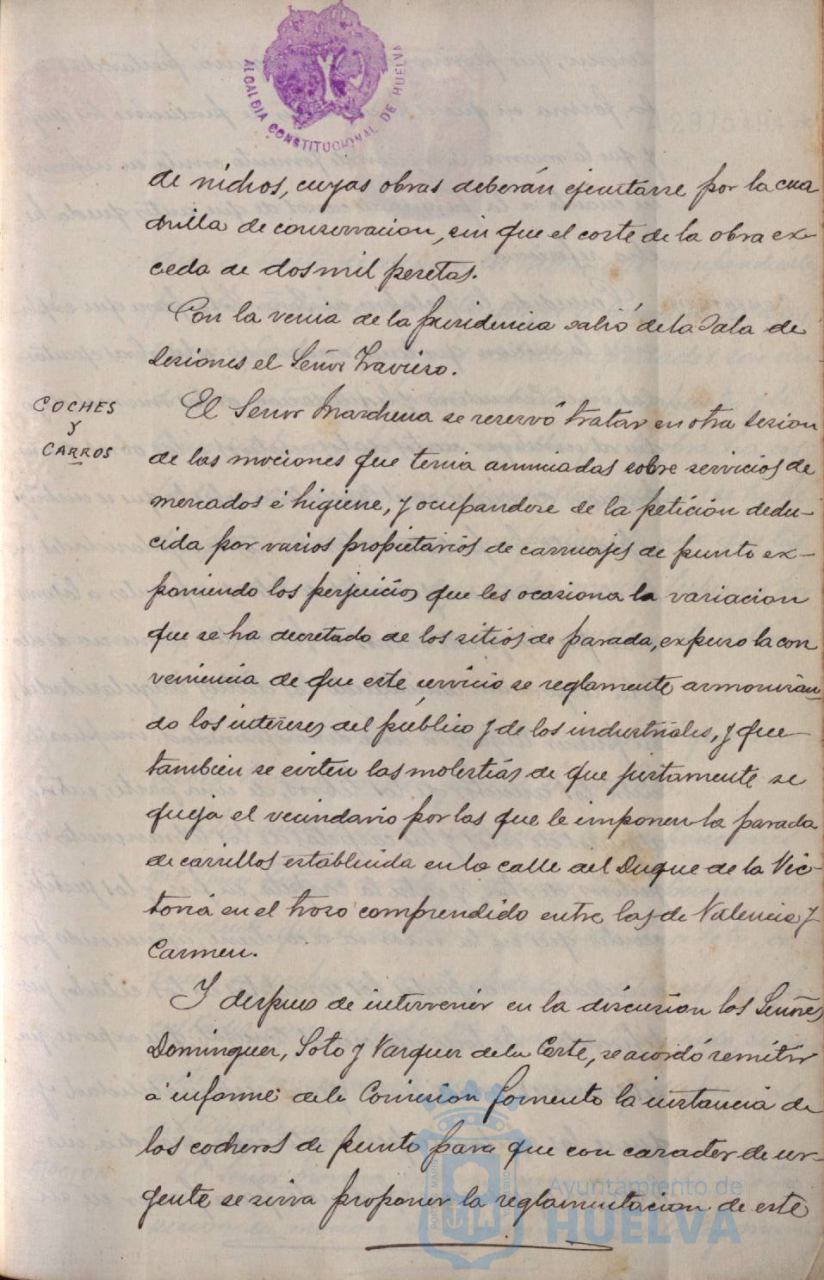 ALCALDIA CONSTITUCIONAL DE HUELVA
de nichos, cuyas obras deberán ejecutarse por la cua
drilla de conservacion, sin que el coste de la obra ex-
ceda de dos mil pesetas.
Con la venia de la presidencia salió de la Sala de
Sesiones el Señor Traviero.
COCHES
Y
CARROS
El Señor Marchena se reservó tratar en otra sesion
de las mociones que tenia anunciadas sobre servicios de
mercados é higiene, y ocupandose de la petición dedu-
cida por varios propietarios de carruajes de punto ex-
poniendo los perjuicios que les ocasiona la variacion
que se ha decretado de los sitios de parada, expuso la con
veniencia de que este servicio se reglamente armonizan-
do los intereses del público y de los industriales, y que
tambien se eviten las molestias de que justamente se
queja el vecindario por las que le imponen la parada
de carrillos establecida en la calle del Duque de la Vic-
toria en el trozo comprendido entre las de Valencia y
Carmen.
Y despues de intervenir en la discusion los Señores
Dominguez, Soto y Vazquez de la Corte, se acordó remitir
a informe de la Comision fomento la instancia de
los cocheros de punto para que con caracter de ur-
gente se sirva proponer la reglamentacion de este
Ayuntamiento de
HUELVA